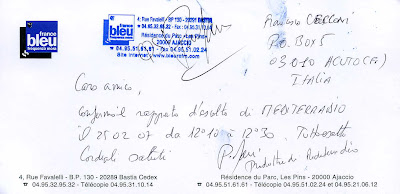 france
bleu
frequenza mora
france
bleu
frequenza mora
4, Rue Favalelli - BP 130 - 20291 Bastia
☎ 04.95.32.95.32 - Fax 04.95.31.10.14
Résidence du Parc, Les Pins
20000 Ajaccio
☎ 04.95.51.61.61 - Fax 04.95.51.02.24
P.O. BOX 5
03010 ACUTO (FR)
ITALIA
Caro amico,
Confermo il rapporto d'ascolto di MEDITERRADIO
il 25 02 07 da 12h10 à 12h30.
Cordiali saluti
4, Rue Favalelli - B.P. 130 - 20289 Bastia Cedex
☎ 04.95.32.95.32 - Télécopie 04.95.31.10.14
Résidence du Parc, Les Pins - 20000 Ajaccio
☎ 04.95.51.61.61 - Télécopie 04.95.51.02.24 et 04.95.21.06.12